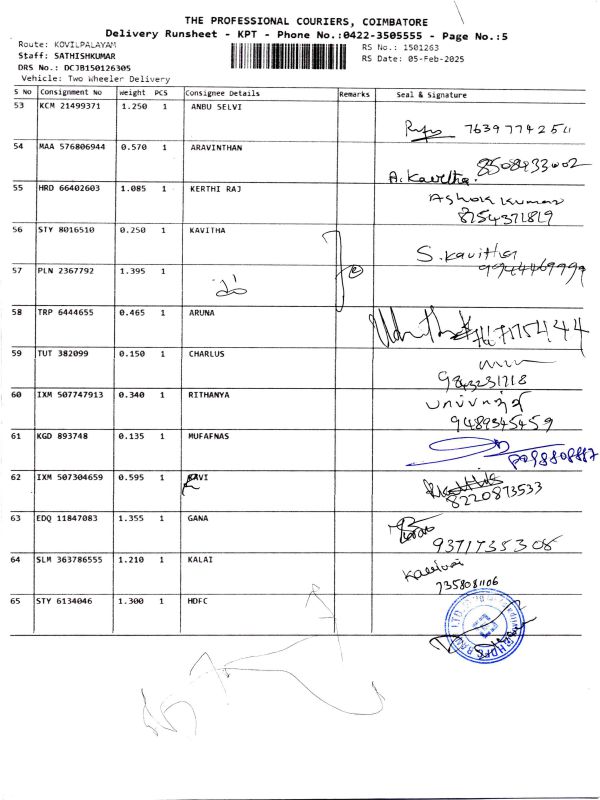 THE PROFESSIONAL COURIERS, COIMBATORE
Delivery Runsheet - KPT - Phone No.:0422-3505555 - Page No.:5
Route: KOVILPALAYAM RS No.: 1501263
Staff: SATHISHKUMAR RS Date: 05-Feb-2025
DRS No.: DCJB150126305
Vehicle: Two Wheeler Delivery
S No Consignment No Weight PCS Consignee Details Remarks Seal & Signature
53 KCM 21499371 1.250 1 ANBU SELVI
7639774250
54 MAA 576806944 0.570 1 ARAVINTHAN
A. Kavitha. 8508933002
55 HRD 66402603 1.085 1 KERTHI RAJ Ashok Kumar
8254371819
56 STY 8016510 0.250 1 KAVITHA S. Kavitha
9944469999
57 PLN 2367792 1.395 1
58 TRP 6444655 0.465 1 ARUNA
59 TUT 382099 0.150 1 CHARLUS
9843231718
60 IXM 507747913 0.340 1 RITHANYA
9489345459
61 KGD 893748 0.135 1 MUFAFNAS
62 IXM 507304659 0.595 1 RAVI
8220873533
63 EDQ 11847083 1.355 1 GANA
9371735308
64 SLM 363786555 1.210 1 KALAI
7358081106
65 STY 6134046 1.300 1 HDFC